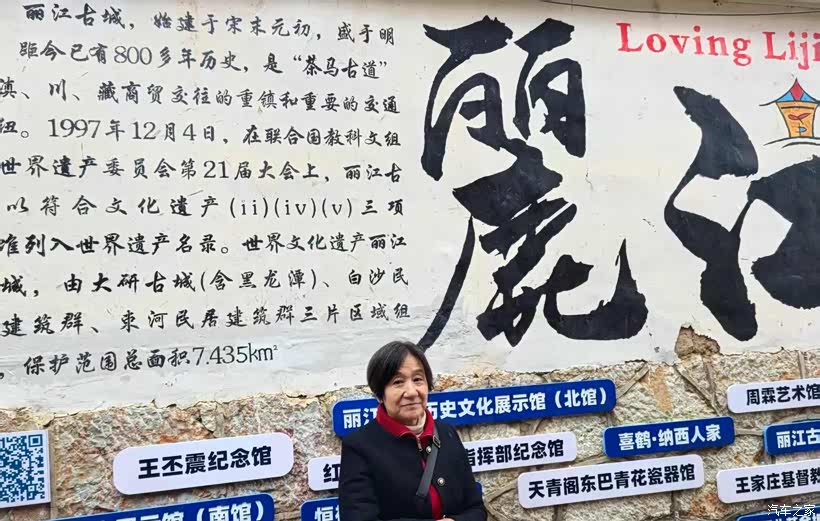 丽江古城，始建于宋末元初，盛于明
距今已有800多年历史，是“茶马古道”
滇、川、藏商贸交往的重镇和重要的交通
纽。1997年12月4日，在联合国教科文组
世界遗产委员会第21届大会上，丽江古
以符合文化遗产(ii)(iv)(v)三项
准列入世界遗产名录。世界文化遗产丽江
城，由大研古城(含黑龙潭)、白沙民
建筑群、束河民居建筑群三片区域组
，保护范围总面积7.435km²
麗江
Loving Liji
丽江 历史文化展示馆（北馆）
周霖艺术馆
王丕震纪念馆
红 指挥部纪念馆
喜鹤·纳西人家
丽江古
天青阁东巴青花瓷器馆
王家庄基督教
示馆（南馆）
恒
汽车之家